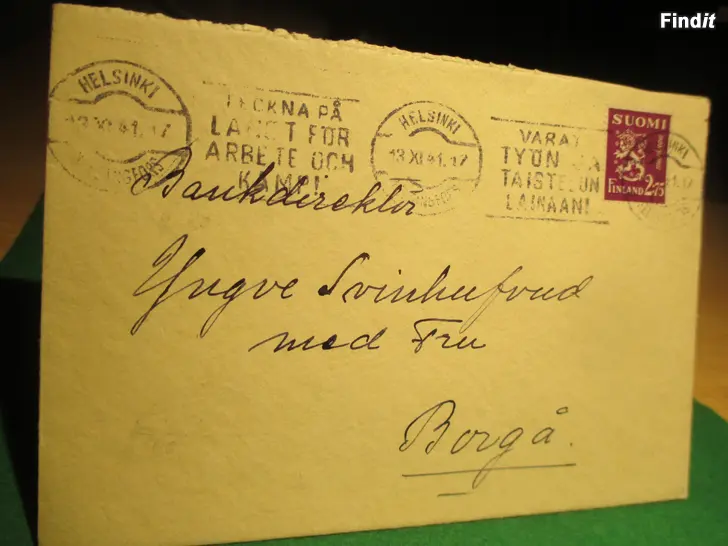 Findit
HELSINKI
13.XI.41.17
HELSINGFORS
TECKNA PÅ
LANET FÖR
ARBETE OCH
KAMP!
HELSINKI
13.XI.41.17
HELSINGFORS
VARAT
TYÖN JA
TAISTELUN
LAINAAN!
SUOMI
FINLAND 2.75
Bankdirektör
Yngve Svinhufvud
med Fru
Borgå.